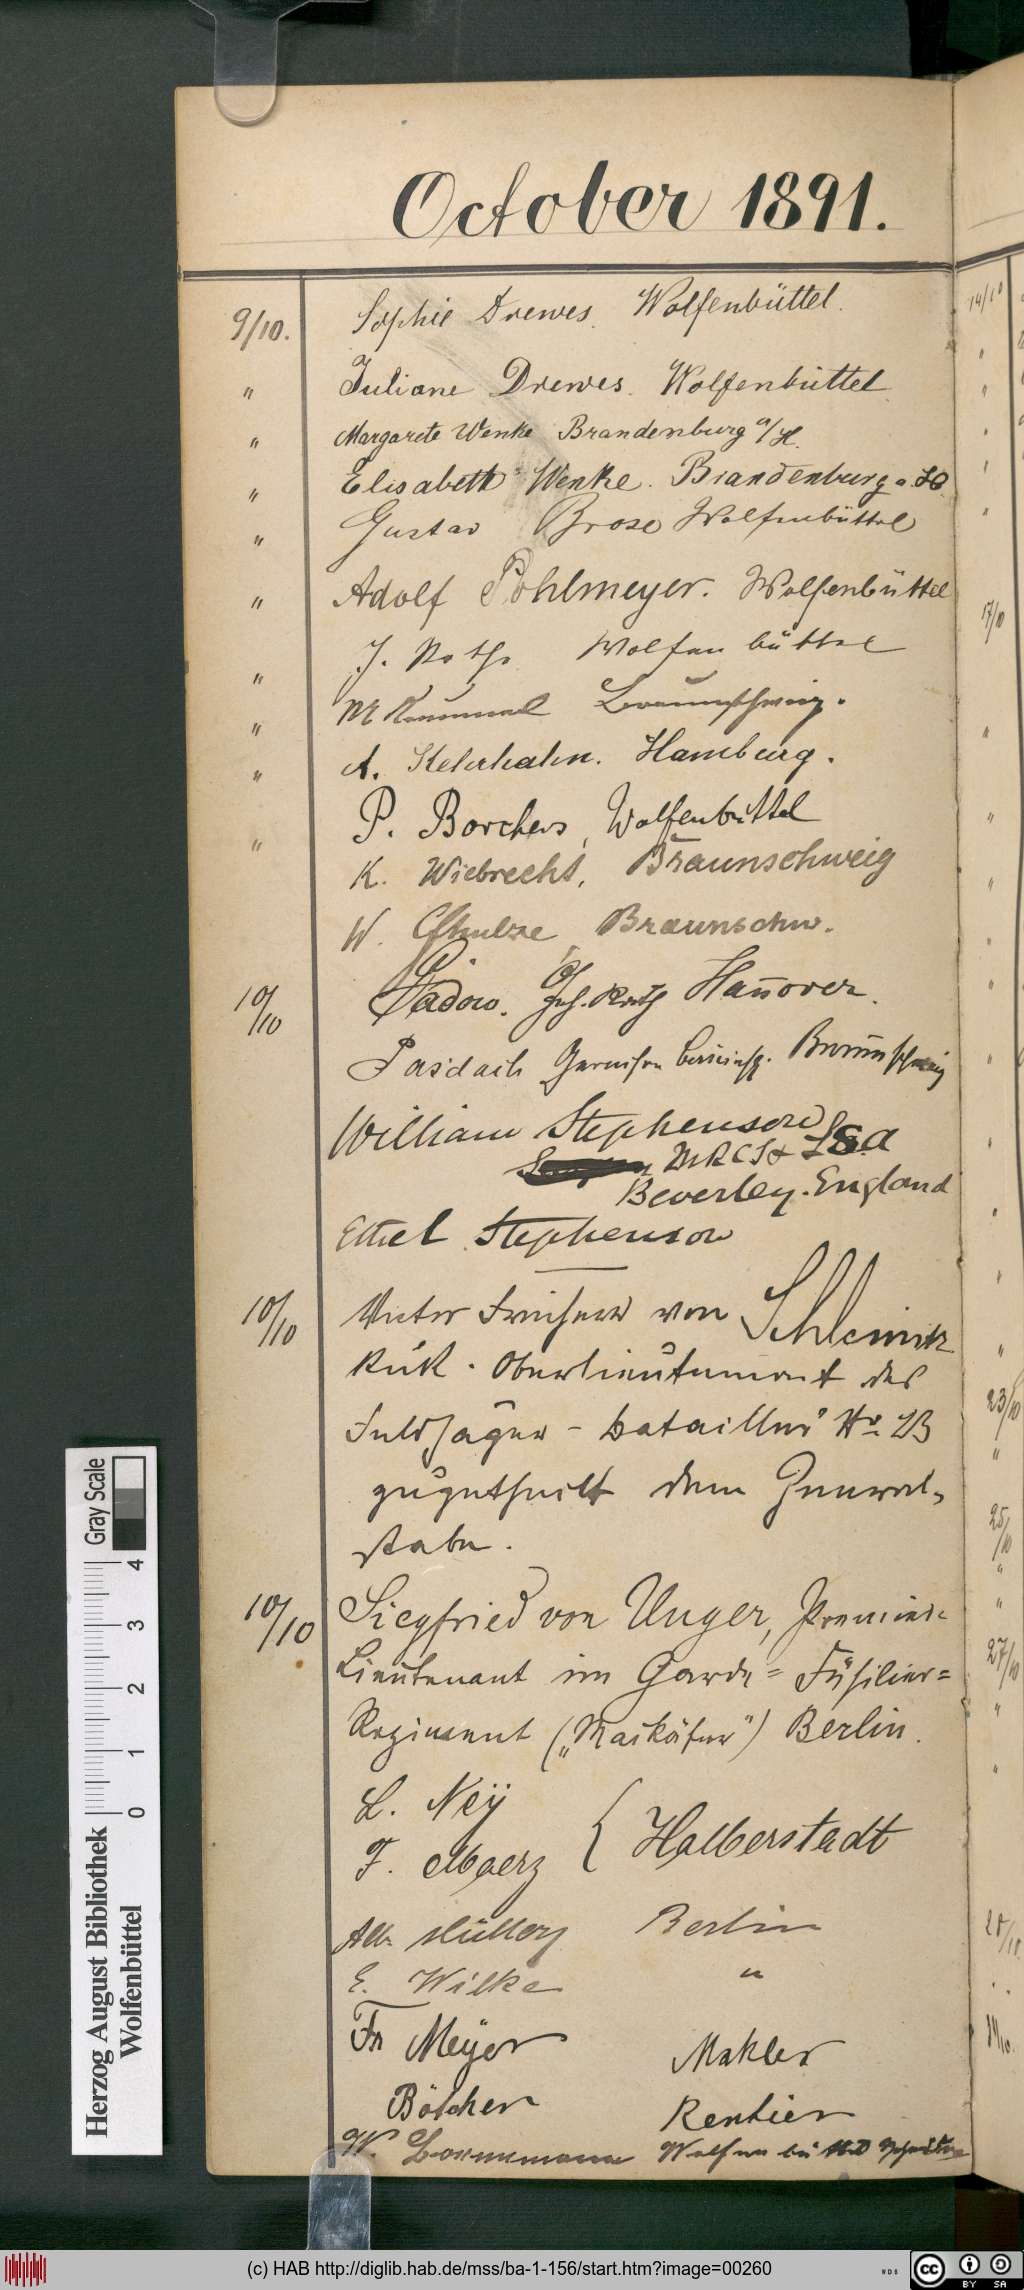 October 1891.
9/10. Sophie Drewes. Wolfenbüttel.
" Juliane Drewes. Wolfenbüttel
" Margarete Wenke Brandenburg a/H.
" Elisabeth Wenke. Brandenburg a. H.
" Gustav Brose Wolfenbüttel
" Adolf Pohlmeyer. Wolfenbüttel
" J. Wolfenbüttel
" M Braunschweig.
" A. Kelerhahn. Hamburg.
" P. Borchers, Wolfenbüttel
K. Wiebrecht, Braunschweig
W. Schulze Braunschw.
10/10 Sadow. Hannover.
Pasdach Garnison Braunschweig
William Stephenson
MRCS & LSA
Beverley. England
Ethel Stephenson
10/10 Victor Freiherr von Schleinitz
KuK. Oberlieutenant des
Feldjäger-Bataillons Nr.
zugetheilt dem General-
stabe.
10/10 Siegfried von Unger, Premier-
Lieutenant im Garde=Füsilier=
Regiment („Maikäfer") Berlin.
L. Ney
F. Maerz { Halberstadt
Alb. Müller Berlin
E. Wilke "
Fr Meyer Makler
Bötcher Rentier
W. Bornemann Wolfenbüttel
14/10
17/10
23/10
25/10
27/10
28/10
Gray Scale
0 1 2 3 4
Herzog August Bibliothek
Wolfenbüttel
(c) HAB http://diglib.hab.de/mss/ba-1-156/start.htm?image=00260
cc BY SA